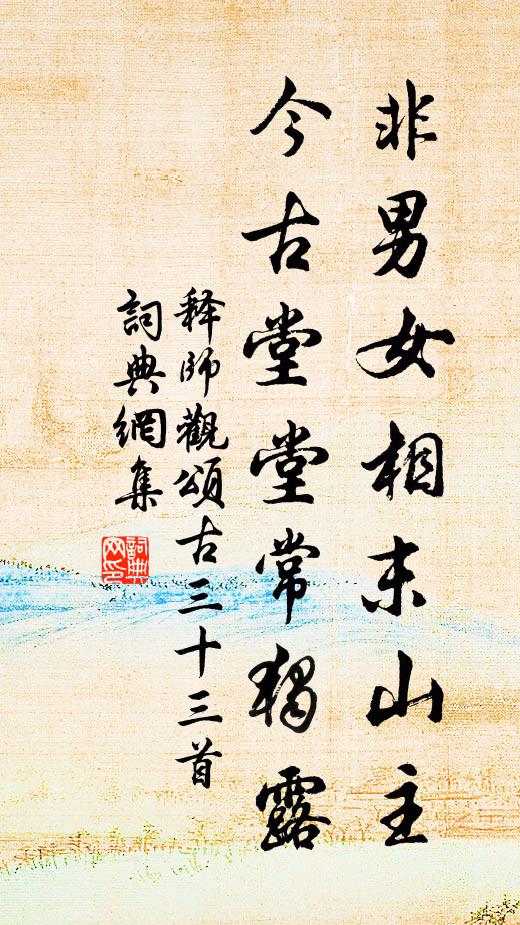 非男女相末山主
今古堂堂常独露
释師觀頌古三十三首
詞典網集
詞典网印